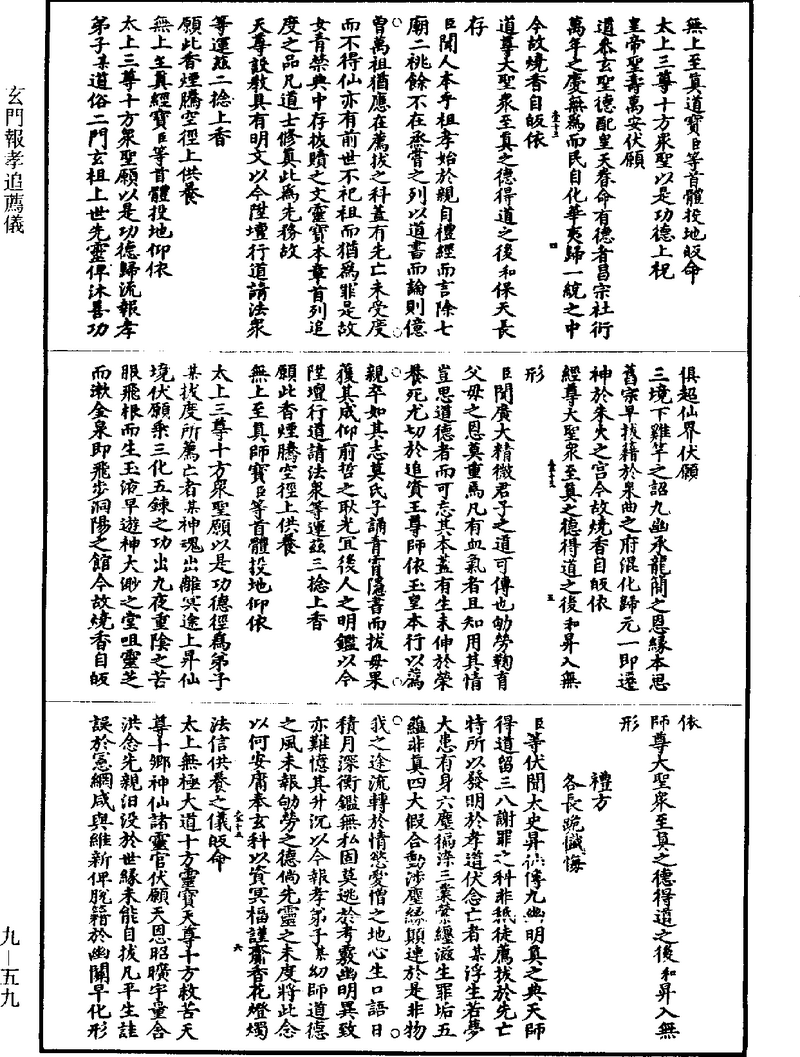 玄門報孝追薦儀
九—五九
無上至真道寶臣等首體投地皈命
太上三尊十方衆聖以是功德上祝
皇帝聖壽萬安伏願
道參玄聖德配皇天眷命有德者昌宗社衍
萬年之慶無爲而民自化華夷歸一統之中
今故燒香自皈依
道尊大聖衆至真之德得道之後和保天長
存
臣聞人本乎祖孝始於親自禮經而言除七
廟二祧餘不在烝嘗之列以道書而論則億
曾萬祖猶應在薦拔之科蓋有先亡未受度
而不得仙亦有前世不祀祖而猶爲罪是故
女青禁典中存拔贖之文靈寶本章首列追
度之品凡道士修真此爲先務故
天尊設教具有明文以今陞壇行道請法衆
等運茲二捻上香
願此香煙騰空徑上供養
無上至真經寶臣等首體投地仰依
太上三尊十方衆聖願以是功德歸流報孝
弟子某道俗二門玄祖上世先靈俾沐善功
俱超仙界伏願
三境下雞竿之詔九幽承龍簡之恩緣本思
舊宗早拔籍於泉曲之府混化歸元一即遷
神於朱火之宮今故燒香自皈依
經尊大聖衆至真之德得道之後和昇入無
形
臣聞廣大精微君子之道可傳也劬勞鞠育
父母之恩莫重焉凡有血氣者且知用其情
豈思道德者而可忘其本蓋有生未伸於榮
養死尤切於追資王尊師依玉皇本行以薦
親卒如其志莫氏子誦青霄隱書而拔母果
獲其成仰前哲之耿光宜後人之明鑑以今
陞壇行道請法衆等運茲三捻上香
願此香煙騰空徑上供養
無上至真師寶臣等首體投地仰依
太上三尊十方衆聖願以是功德徑爲弟子
某拔度所薦亡者某神魂出離冥途上昇仙
境伏願乘三化五鍊之功出九夜重陰之苦
服飛根而生玉液早遊神大渺之堂咀靈芝
而漱金泉即飛步洞陽之館今故燒香自皈
依
師尊大聖衆至真之德得道之後和昇入無
形
禮方
各長跪懺悔
臣等伏聞太史昇仙傳九幽明真之典天師
得道留三八謝罪之科非祇徒薦拔於先亡
特所以發明於孝道伏念亡者某浮生若夢
大患有身六塵徧染三業縈纏滋生罪垢五
蘊非真四大假合動涉塵緣顛連於是非物
我之途流轉於情慾愛憎之地心生口語日
積月深衡鑑無私固莫逃於考覈幽明異致
亦難憶其升沉以今報孝弟子某幼師道德
之風未報劬勞之德倘先靈之未度將此念
以何安庸奉玄科以資冥福謹齋香花燈燭
法信供養之儀皈命
太上無極大道十方靈寶天尊十方救苦天
尊十鄉神仙諸靈官伏願天恩昭曠宇量含
洪念先親汩没於世緣未能自拔凡平生詿
誤於憲網咸與維新俾脫籍於幽關早化形